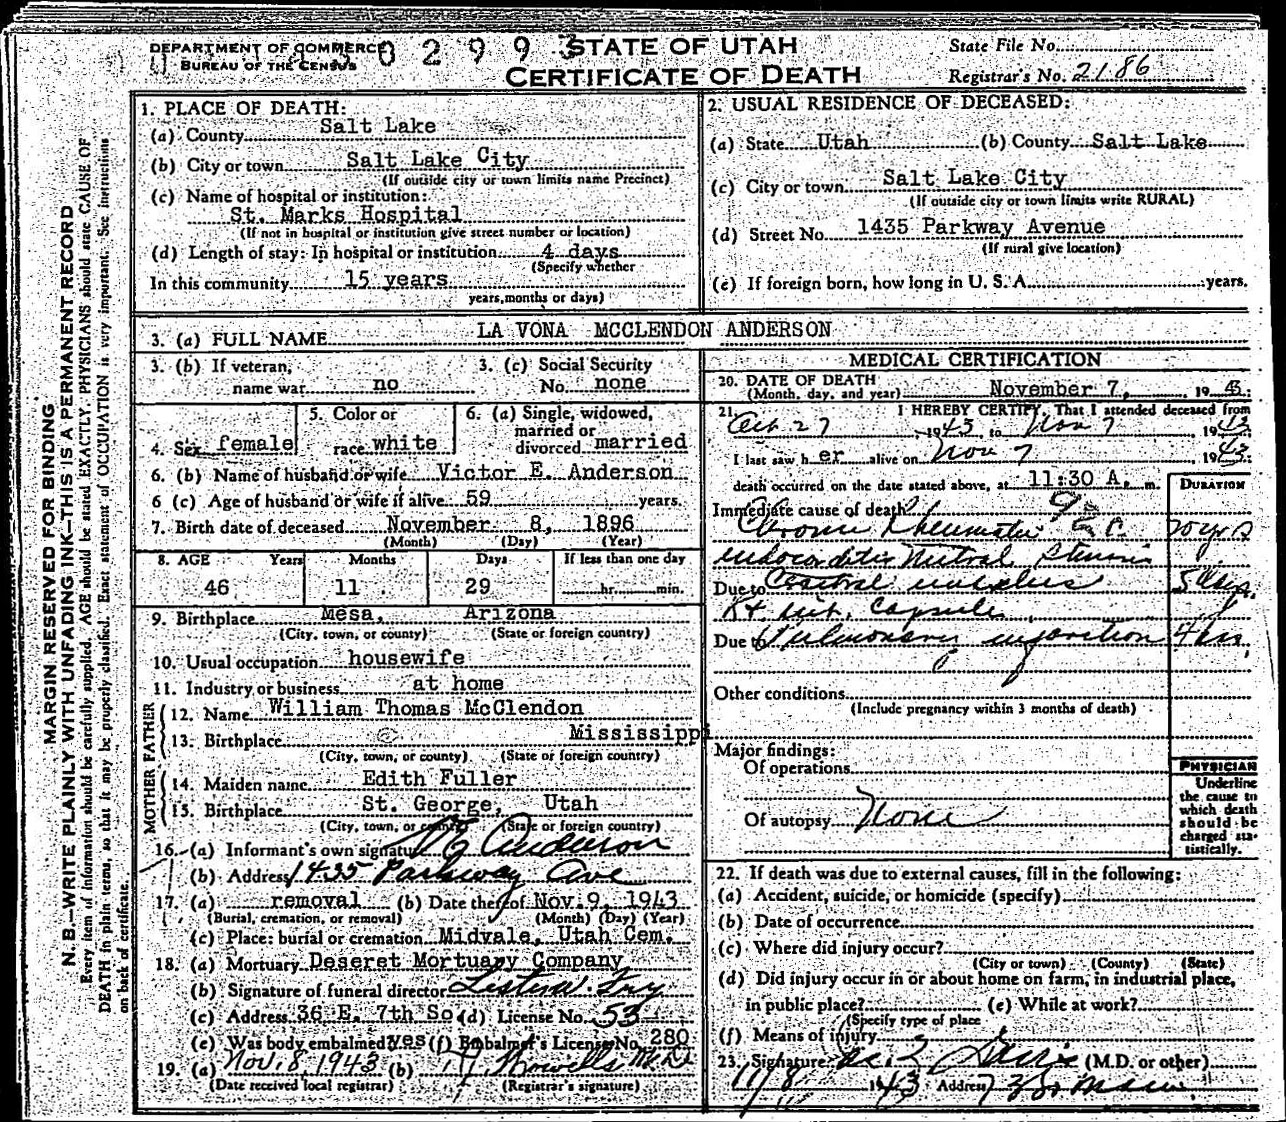 DEPARTMENT OF COMMERCE
BUREAU OF THE CENSUS
0299
STATE OF UTAH
CERTIFICATE OF DEATH
State File No.
Registrar's No. 2186
MARGIN RESERVED FOR BINDING
N. B.—WRITE PLAINLY WITH UNFADING INK—THIS IS A PERMANENT RECORD
Every item of information should be carefully supplied. AGE should be stated EXACTLY. PHYSICIANS should state CAUSE OF
DEATH in plain terms, so that it may be properly classified. Exact statement of OCCUPATION is very important. See instructions
on back of certificate.
1. PLACE OF DEATH:
(a) County Salt Lake
(b) City or town Salt Lake City
(If outside city or town limits name Precinct)
(c) Name of hospital or institution:
St. Marks Hospital
(If not in hospital or institution give street number or location)
(d) Length of stay: In hospital or institution 4 days
(Specify whether
In this community 15 years
years, months or days)
2. USUAL RESIDENCE OF DECEASED:
(a) State Utah (b) County Salt Lake
(c) City or town Salt Lake City
(If outside city or town limits write RURAL)
(d) Street No. 1435 Parkway Avenue
(If rural give location)
(e) If foreign born, how long in U. S. A. years.
3. (a) FULL NAME LA VONA MCCLENDON ANDERSON
3. (b) If veteran,
name war no
3. (c) Social Security
No. none
4. Sex female
5. Color or
race white
6. (a) Single, widowed,
married or
divorced married
6. (b) Name of husband or wife Victor E. Anderson
6 (c) Age of husband or wife if alive 59 years.
7. Birth date of deceased November 8, 1896
(Month) (Day) (Year)
8. AGE Years Months Days If less than one day
46 11 29 hr. min.
9. Birthplace Mesa, Arizona
(City, town, or county) (State or foreign country)
10. Usual occupation housewife
11. Industry or business at home
FATHER
12. Name William Thomas McClendon
13. Birthplace Mississippi
(City, town, or county) (State or foreign country)
MOTHER
14. Maiden name Edith Fuller
15. Birthplace St. George, Utah
(City, town, or county) (State or foreign country)
16. (a) Informant's own signature V E Anderson
(b) Address 1435 Parkway Ave
17. (a) removal (b) Date thereof Nov. 9, 1943
(Burial, cremation, or removal) (Month) (Day) (Year)
(c) Place: burial or cremation Midvale, Utah Cem.
18. (a) Mortuary Deseret Mortuary Company
(b) Signature of funeral director
(c) Address 36 E. 7th So (d) License No. 53
(e) Was body embalmed? yes (f) Embalmer's License No. 280
19. (a) Nov. 8, 1943 (b) M.D.
(Date received local registrar) (Registrar's signature)
MEDICAL CERTIFICATION
20. DATE OF DEATH
(Month, day, and year) November 7, 1943
21. I HEREBY CERTIFY, That I attended deceased from
Oct 27, 1943 to Nov 7 1943
I last saw her alive on Nov 7 1943;
death occurred on the date stated above, at 11:30 A. m.
DURATION
Immediate cause of death?
Chronic Rheumatic
endocarditis Mitral Stenosis
Due to Cerebral embolus 5 days.
Rt int. Capsule
Due to Pulmonary infarction 4 hrs.
Other conditions
(Include pregnancy within 3 months of death)
Major findings:
Of operations
Of autopsy None
PHYSICIAN
Underline
the cause to
which death
should be
charged sta-
tistically.
22. If death was due to external causes, fill in the following:
(a) Accident, suicide, or homicide (specify)
(b) Date of occurrence
(c) Where did injury occur?
(City or town) (County) (State)
(d) Did injury occur in or about home on farm, in industrial place,
in public place? (e) While at work?
(Specify type of place
(f) Means of injury
23. Signature (M.D. or other)
11/8 1943 Address